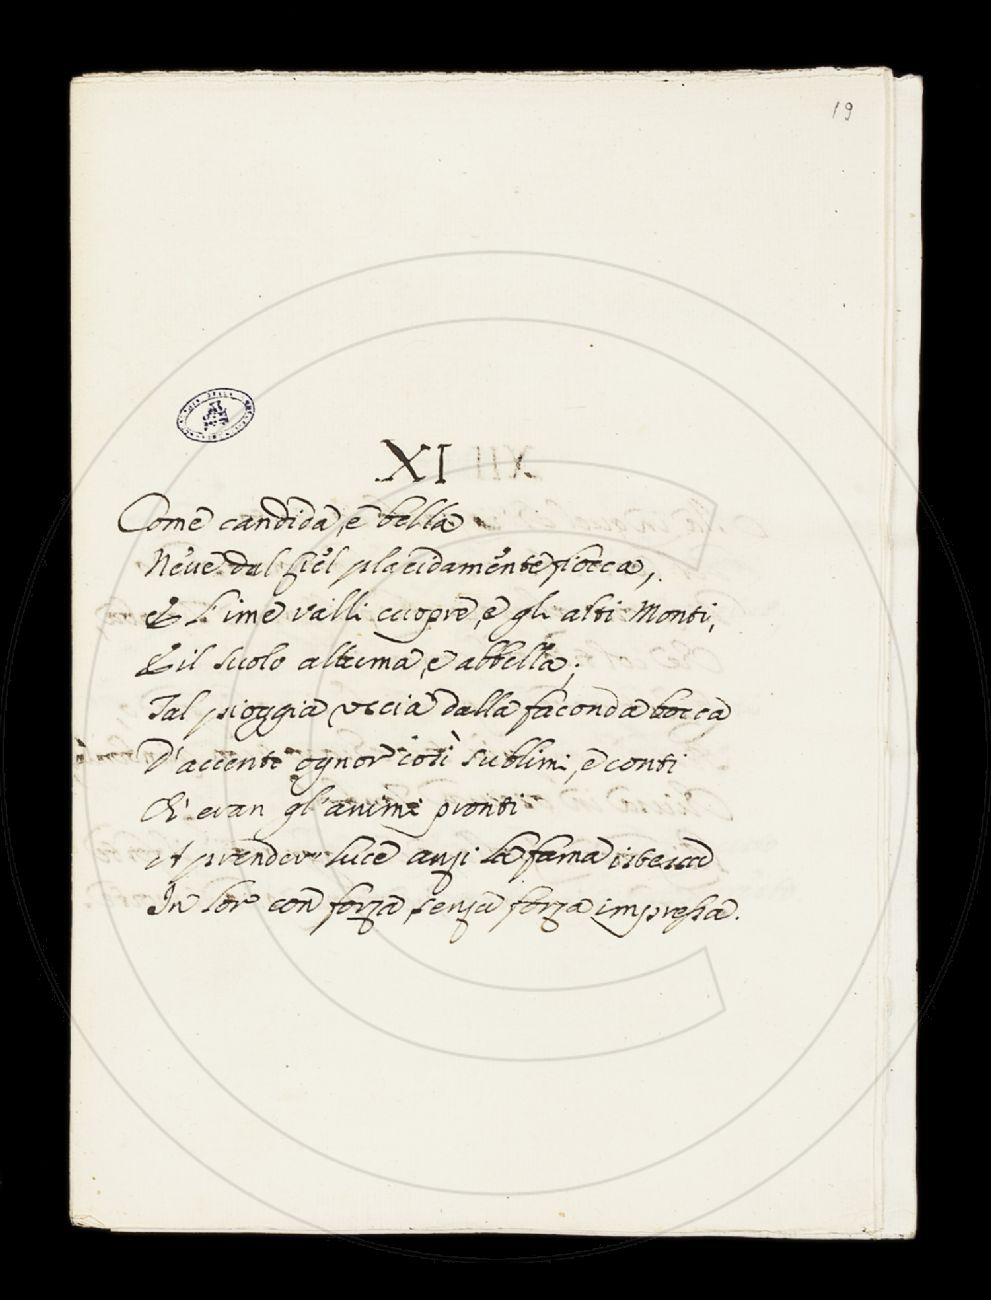 19
XI
Come candida, e bella
Neve dal Ciel placidamente fiocca,
E l'ime valli cuopre, e gli alti Monti,
E il suolo alluma, e abbella;
Tal pioggia uscia dalla faconda bocca
D'accenti ognor così sublimi, e conti
Ch'eran gl'animi pronti
A prender luce anzi la fama
In lor con forza, senza forza impressa.